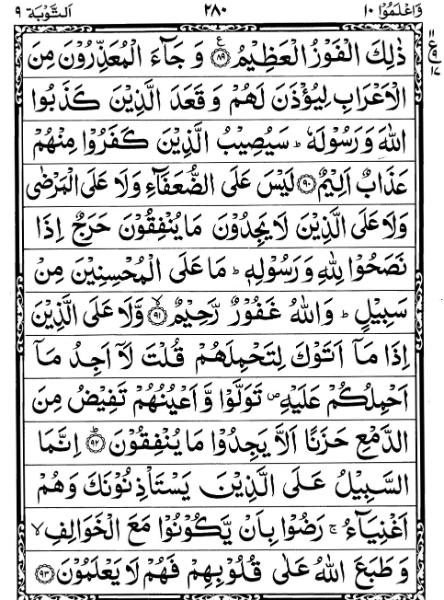 وَاعْلَمُوْٓا ١٠ ٢٨٠ اَلتَّوْبَة ٩
ذٰلِكَ الْفَوْزُ الْعَظِيْمُ ع ﴿٨٩﴾ وَ جَآءَ الْمُعَذِّرُوْنَ مِنَ
الْاَعْرَابِ لِيُؤْذَنَ لَهُمْ وَ قَعَدَ الَّذِيْنَ كَذَبُوا
اللّٰهَ وَ رَسُوْلَهٗ ؕ سَيُصِيْبُ الَّذِيْنَ كَفَرُوْا مِنْهُمْ
عَذَابٌ اَلِيْمٌ ﴿٩٠﴾ لَيْسَ عَلَى الضُّعَفَآءِ وَلَا عَلَى الْمَرْضٰى
وَلَا عَلَى الَّذِيْنَ لَا يَجِدُوْنَ مَا يُنْفِقُوْنَ حَرَجٌ اِذَا
نَصَحُوْا لِلّٰهِ وَ رَسُوْلِهٖ ؕ مَا عَلَى الْمُحْسِنِيْنَ مِنْ
سَبِيْلٍ ؕ وَاللّٰهُ غَفُوْرٌ رَّحِيْمٌ ﴿٩١﴾ۙ وَّلَا عَلَى الَّذِيْنَ
اِذَا مَاۤ اَتَوْكَ لِتَحْمِلَهُمْ قُلْتَ لَاۤ اَجِدُ مَاۤ
اَحْمِلُكُمْ عَلَيْهِ ۪ تَوَلَّوْا وَّ اَعْيُنُهُمْ تَفِيْضُ مِنَ
الدَّمْعِ حَزَنًا اَلَّا يَجِدُوْا مَا يُنْفِقُوْنَ ﴿٩٢﴾ؕ اِنَّمَا
السَّبِيْلُ عَلَى الَّذِيْنَ يَسْتَاْذِنُوْنَكَ وَهُمْ
اَغْنِيَآءُ ۚ رَضُوْا بِاَنْ يَّكُوْنُوْا مَعَ الْخَوَالِفِ ۙ
وَ طَبَعَ اللّٰهُ عَلٰى قُلُوْبِهِمْ فَهُمْ لَا يَعْلَمُوْنَ ﴿٩٣﴾
١١
ع
٩
١٧